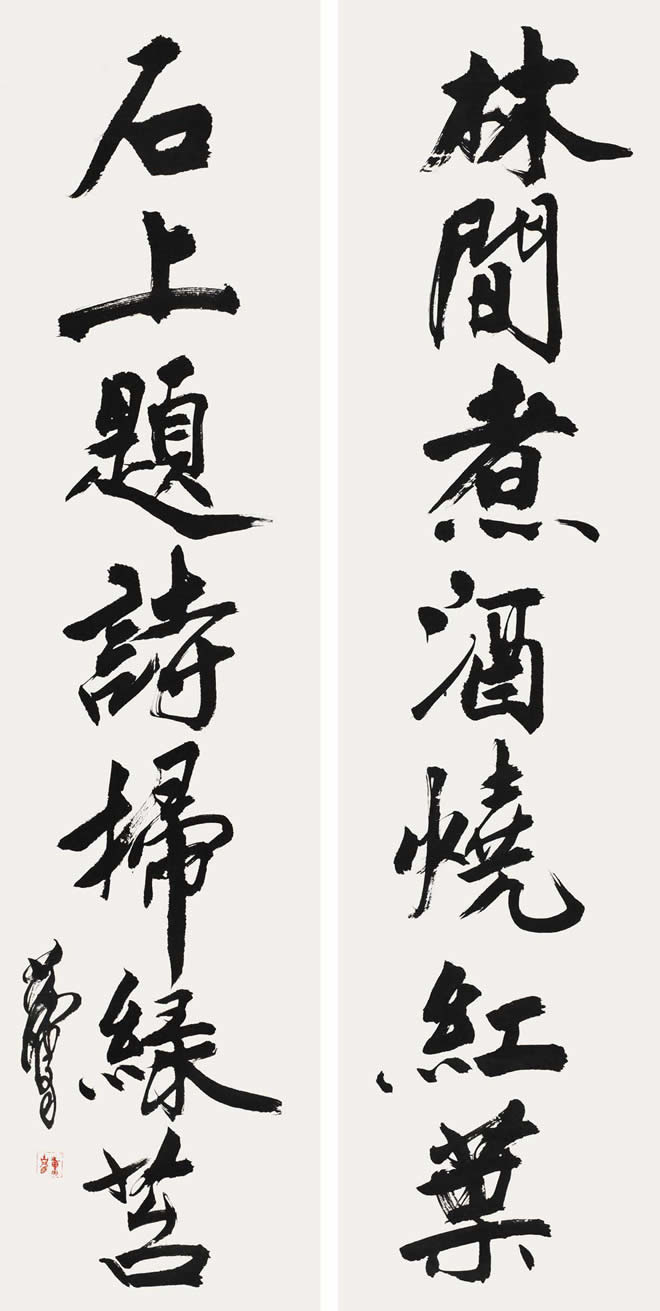 林間煮酒燒紅葉
石上題詩掃緑苔